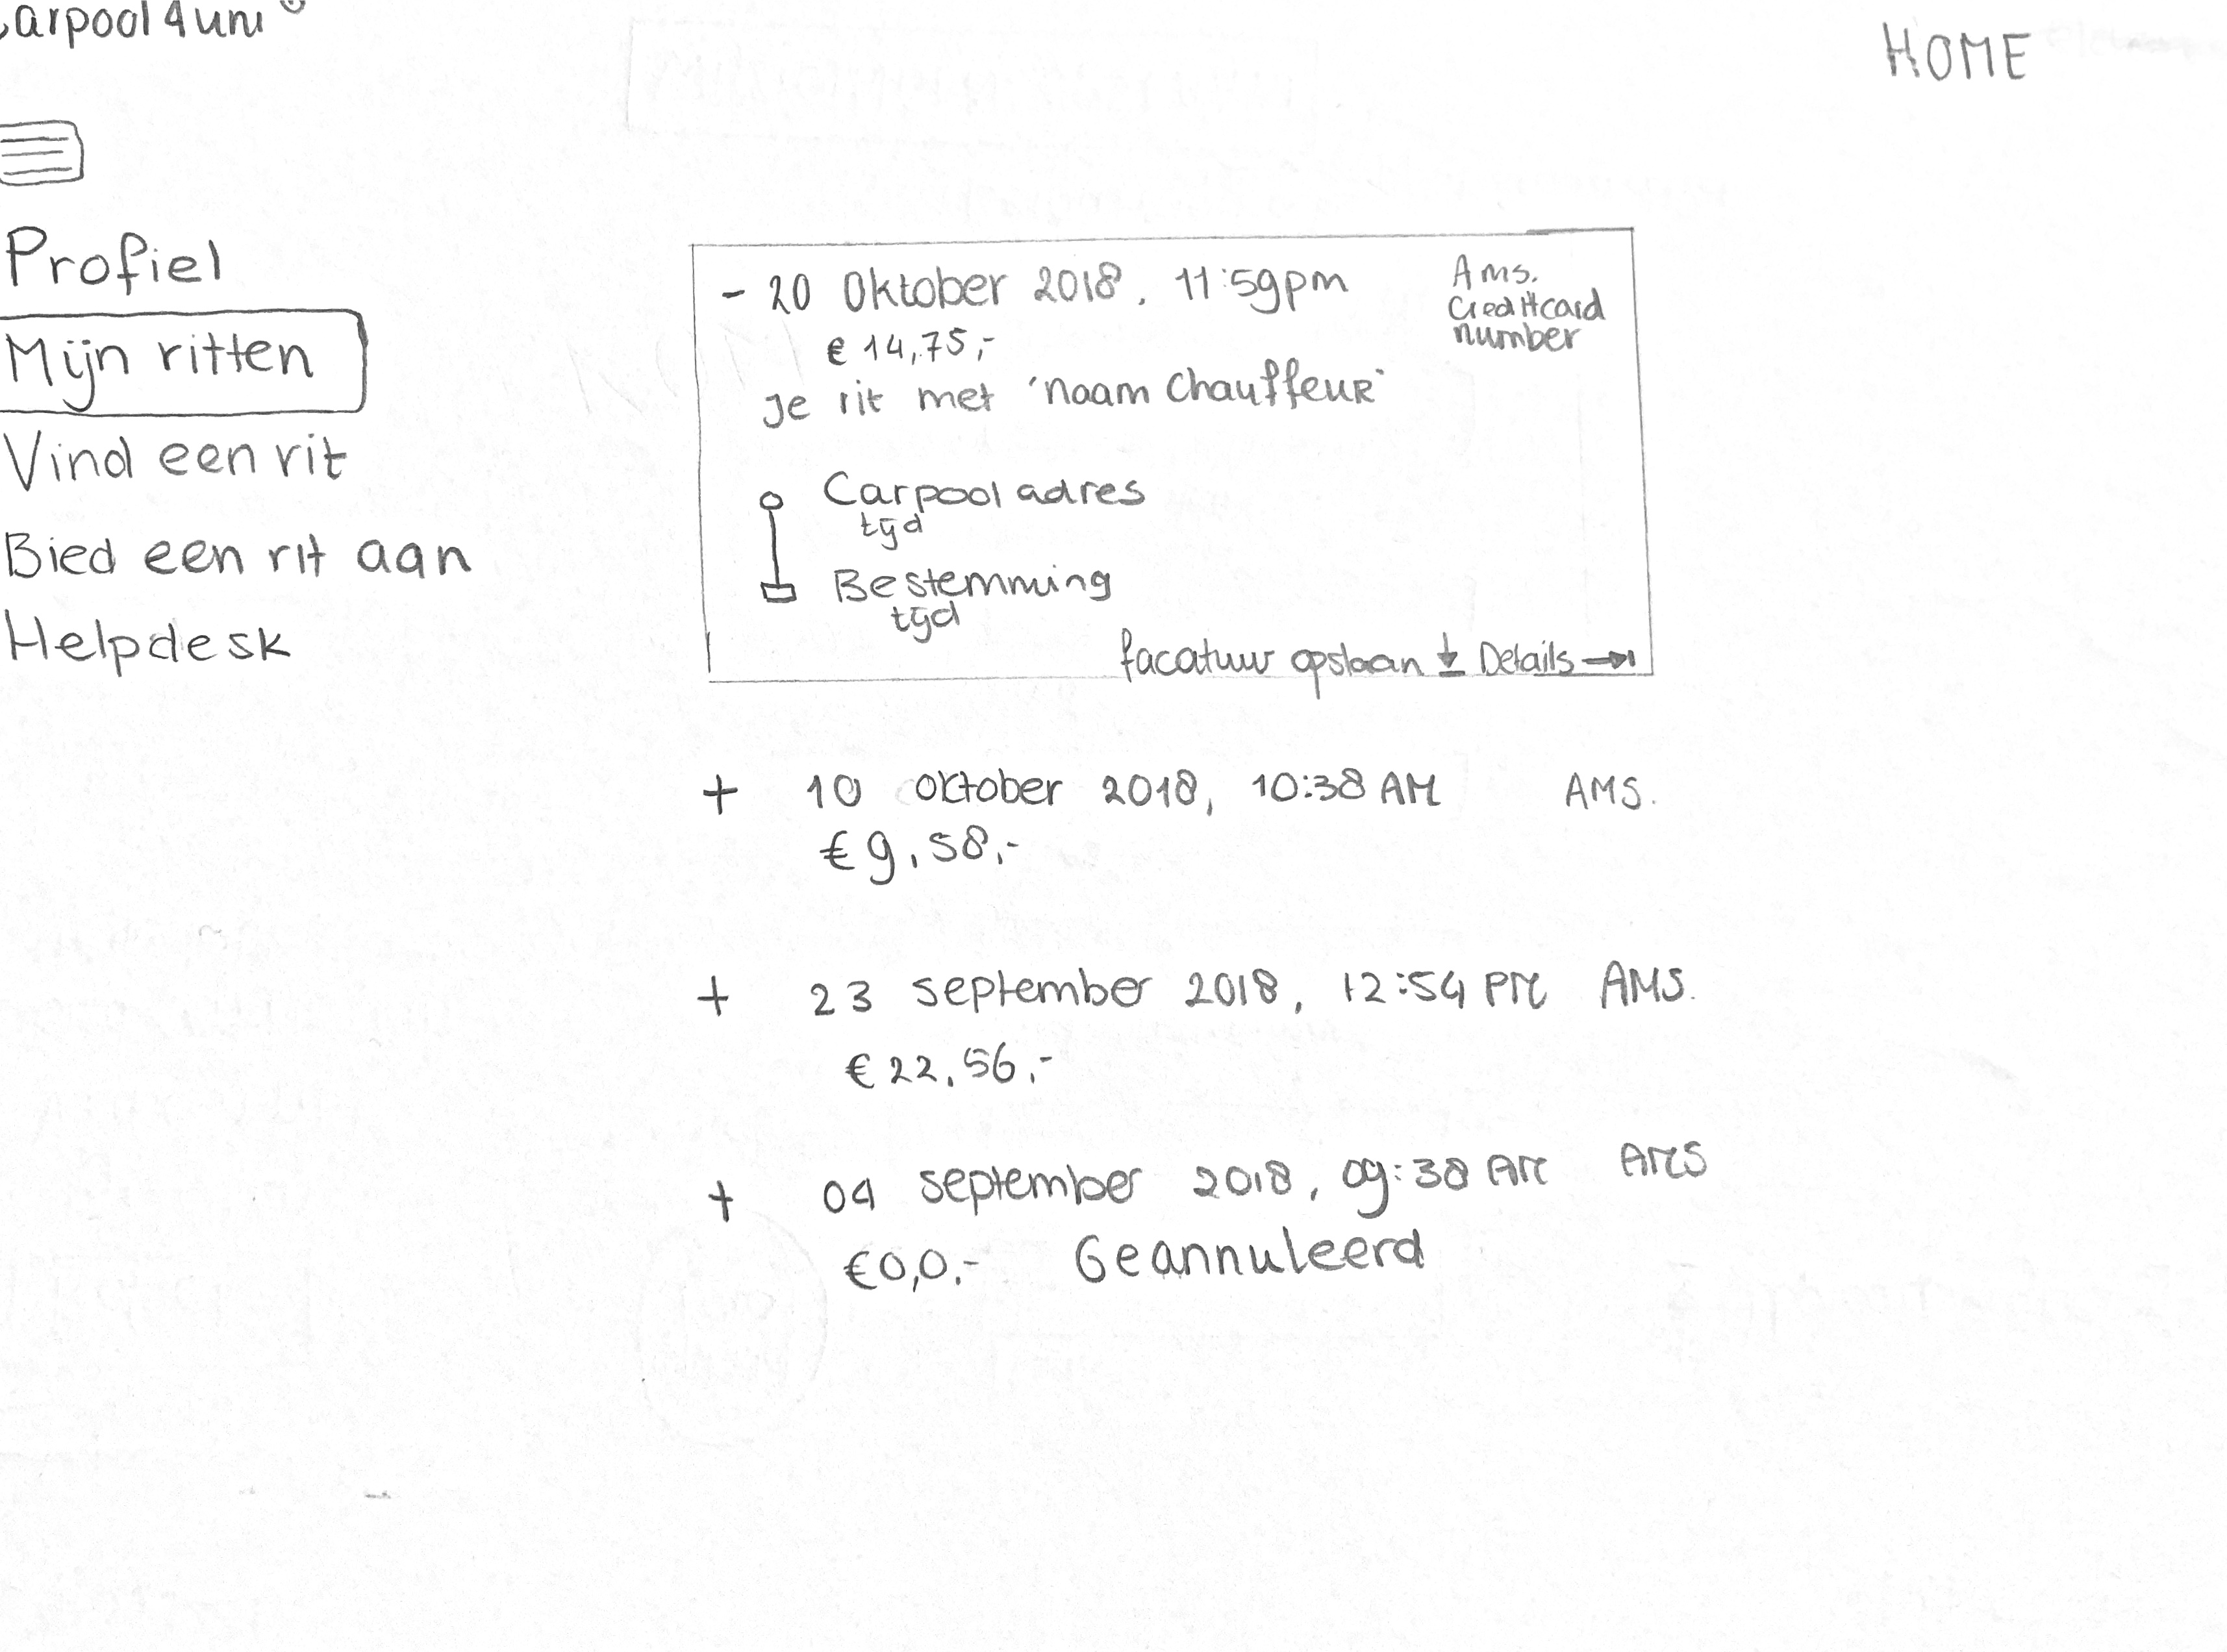 carpool4uni
HOME
Profiel
Mijn ritten
Vind een rit
Bied een rit aan
Helpdesk
- 20 Oktober 2018, 11:59pm
Ams.
€ 14,75,-
Creditcard
number
Je rit met 'naam chauffeur'
Carpool adres
tijd
Bestemming
tijd
facatuur opslaan ↓ Details →
+ 10 oktober 2018, 10:38 AM AMS.
€ 9,58,-
+ 23 september 2018, 12:54 PM AMS.
€ 22,56,-
+ 04 september 2018, 09:38 AM AMS
€0,0,- Geannuleerd